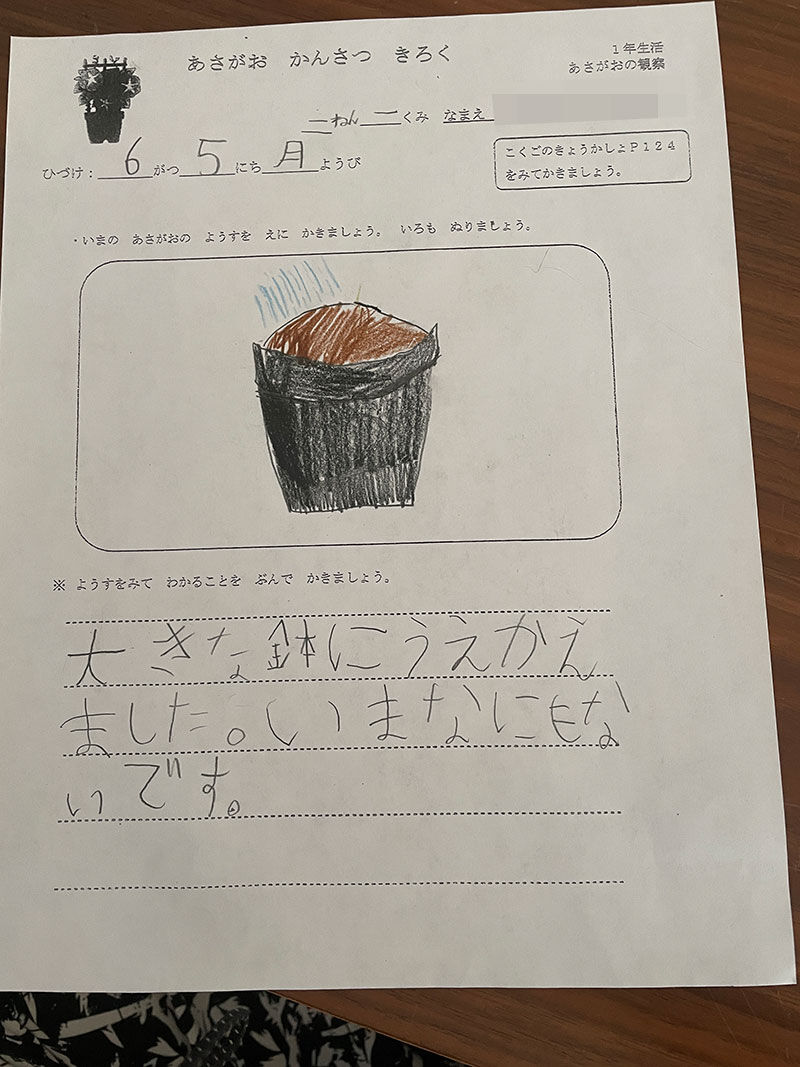 あさがお かんさつ きろく
1年生活
あさがおの観察
二ねん 二くみ なまえ
ひづけ：6がつ5にち月ようび
こくごのきょうかしょＰ１２４
をみてかきましょう。
・いまの あさがおの ようすを えに かきましょう。 いろも ぬりましょう。
※ ようすをみて わかることを ぶんで かきましょう。
大きな鉢にうえかえ
ました。いまなにもな
いです。